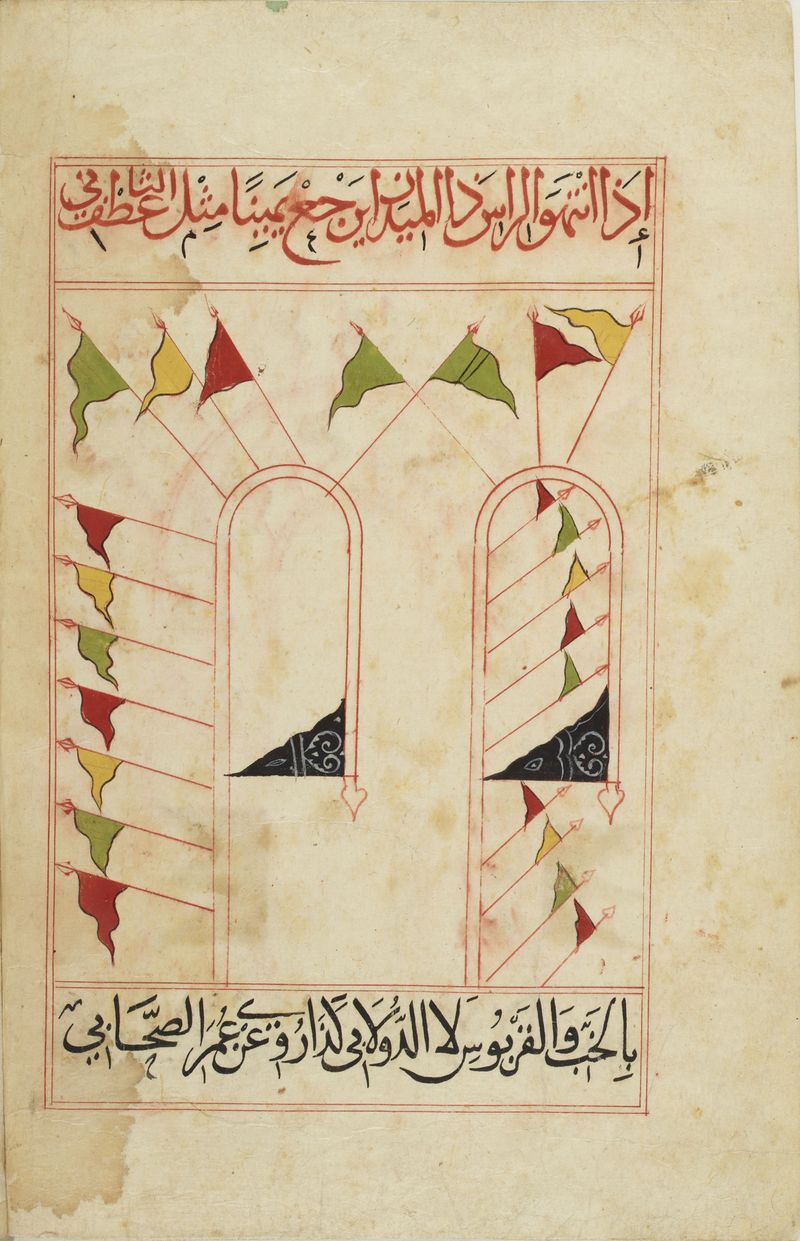 إِذَا انْتَهَوْا الراسَ ذا الميدان ارْجعْ يَمِينًا مِثْل الثا عطف في
بِالخَبِّ وَالقَرَبُوسِ لَا الدُّولَابي كَذَا رُوِي عَنْ عُمَرَ الصَّحَابِي